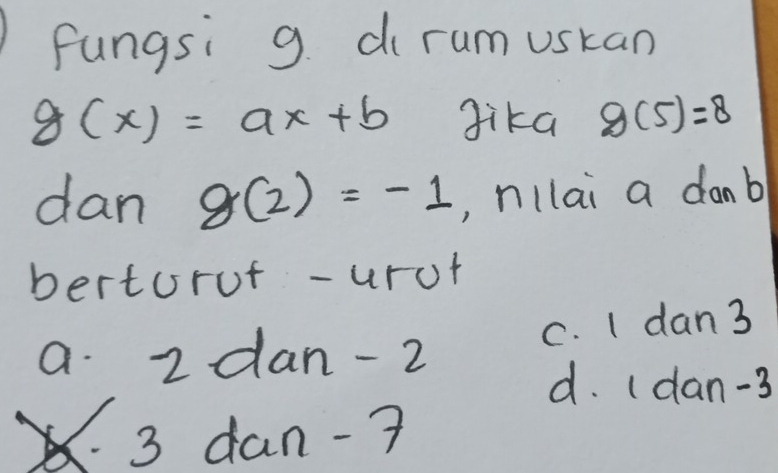 fungsi g. di rumuskan
g(x) = ax + b Jika g(5)=8
dan g(2) = -1, nilai a dan b
berturut - urut
a. 2 dan - 2
c. 1 dan 3
d. 1 dan -3
b. 3 dan - 7